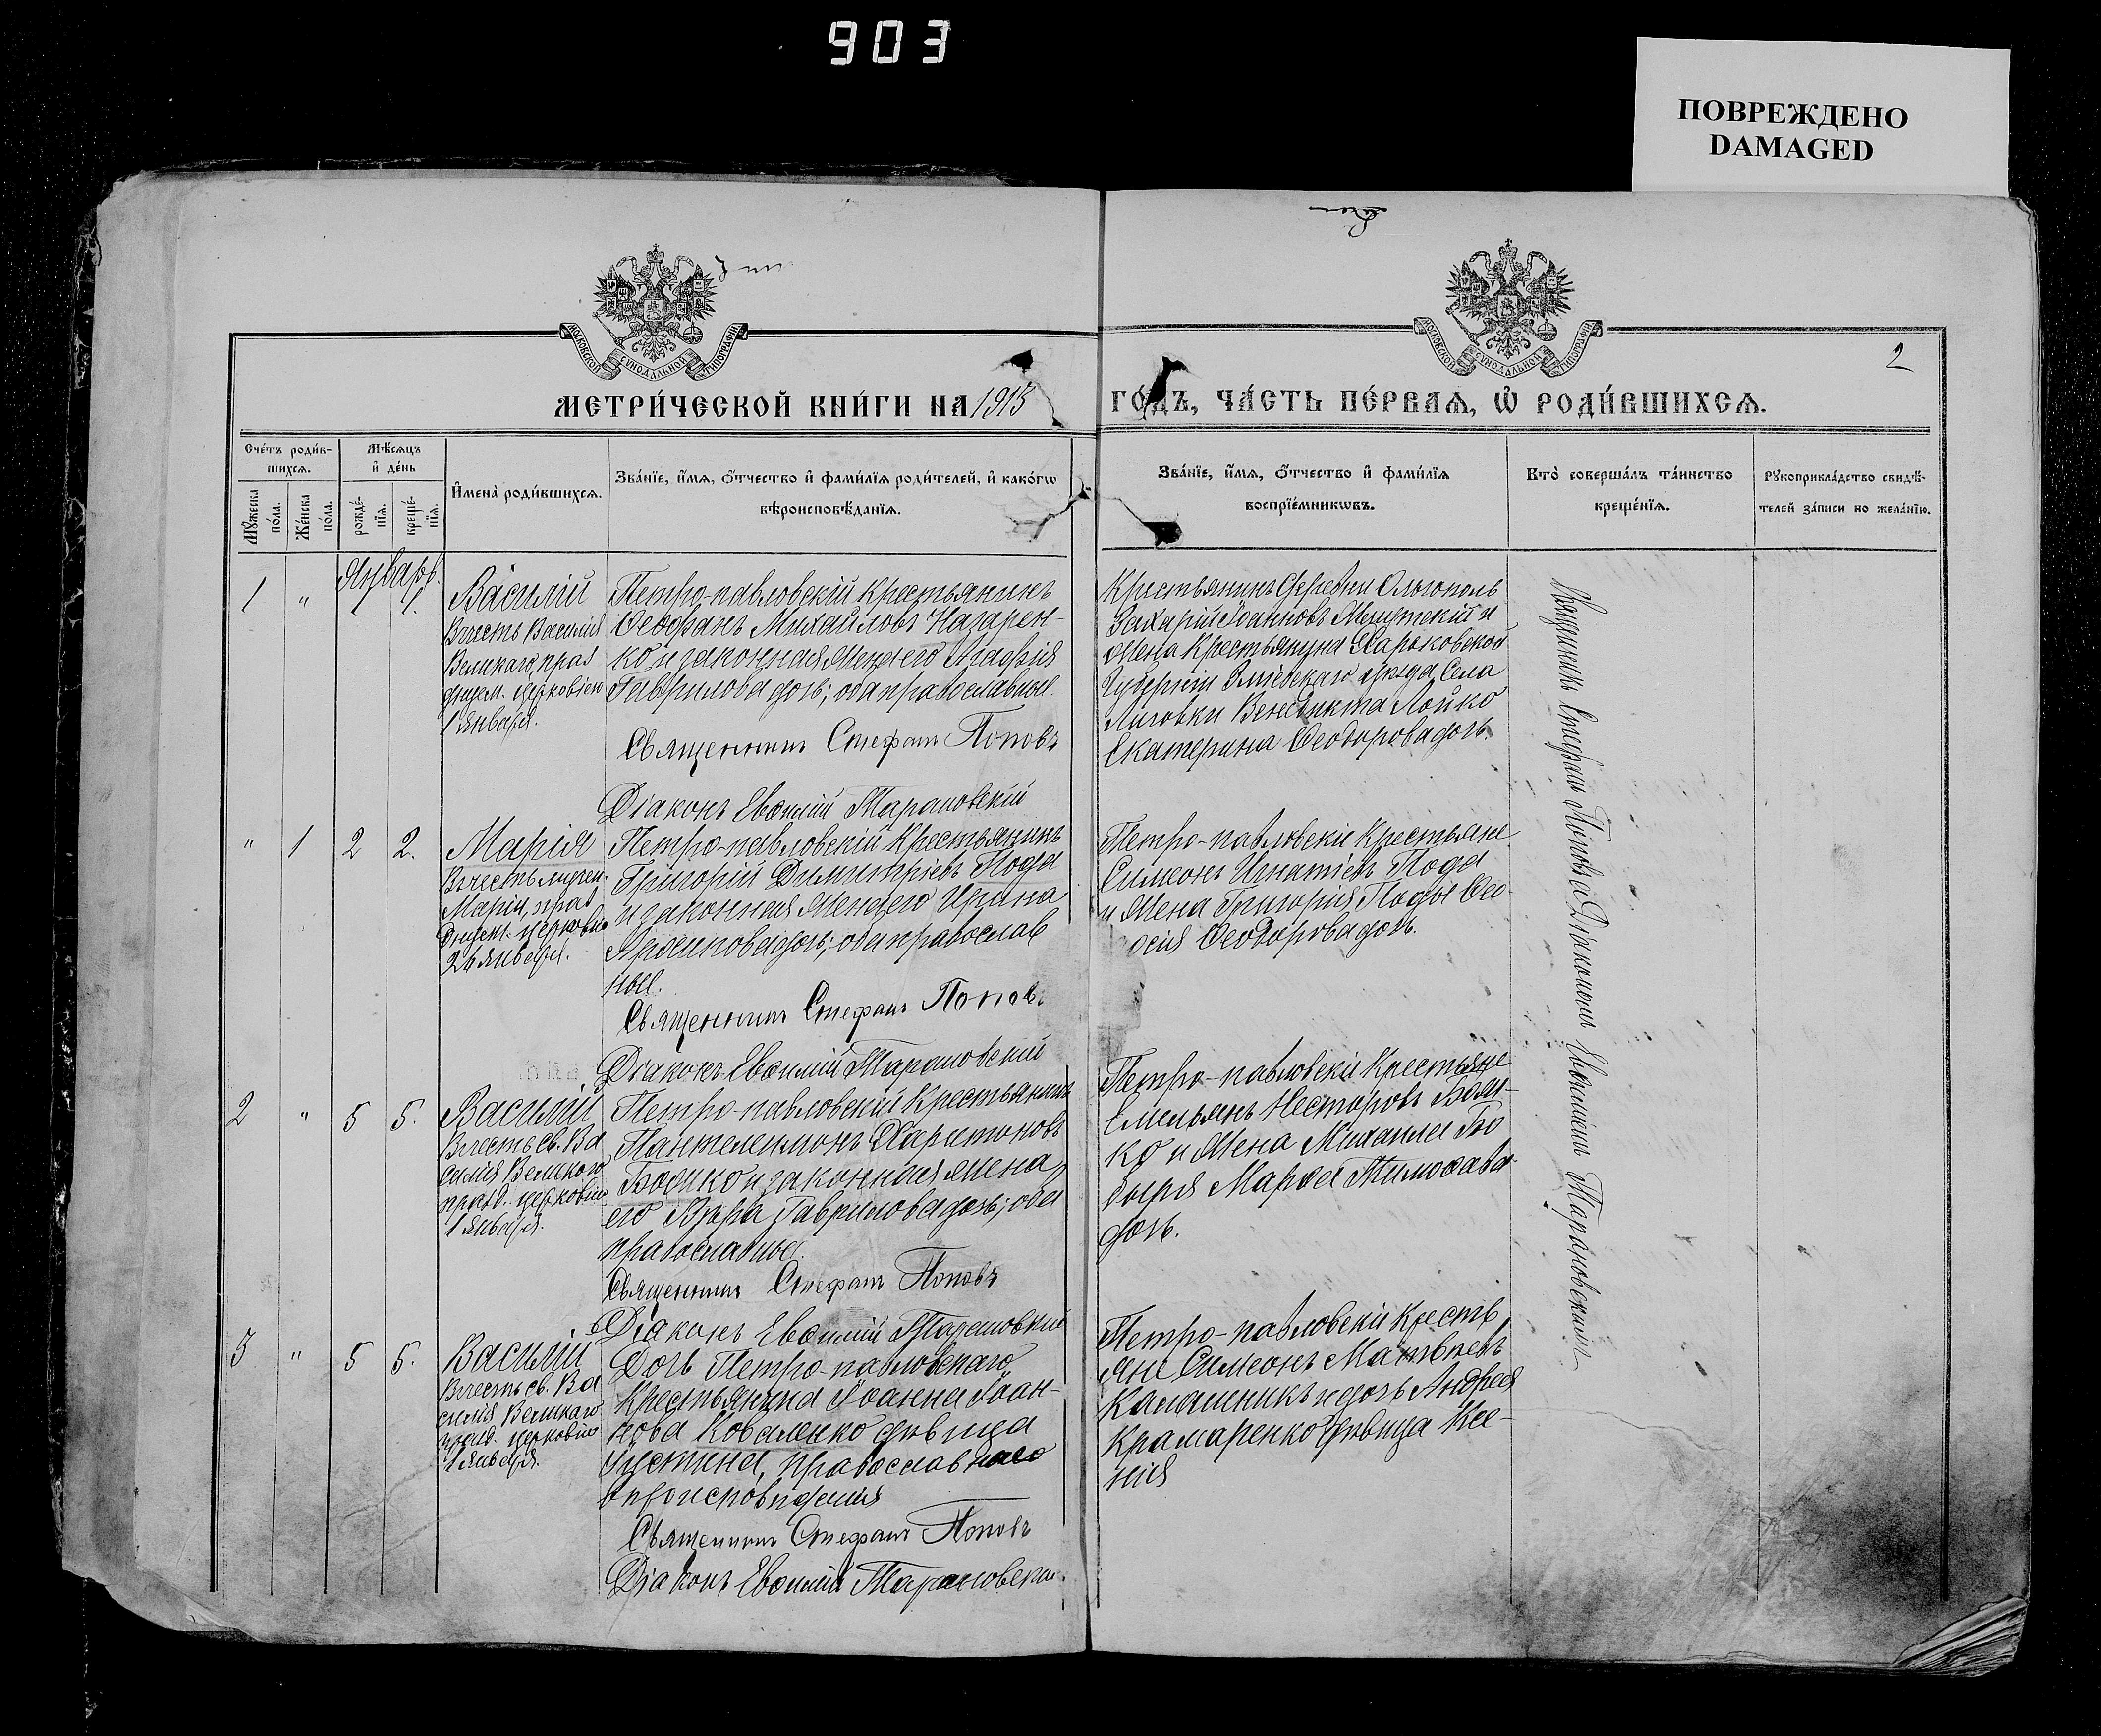 903
ПОВРЕЖДЕНО
DAMAGED
МОСКОВСКОЙ СѴНОДАЛЬНОЙ ТИПОГРАФІИ
МОСКОВСКОЙ СѴНОДАЛЬНОЙ ТИПОГРАФІИ
2
МЕТРИ́ЧЕСКОЙ КНИ́ГИ НА 1913
ГО́ДЪ, ЧА́СТЬ ПЕ́РВАѦ, Ѡ҆ РОДИ́ВШИХСѦ.
Сче́тъ роди́в-
шихсѧ.
Мѣ́сѧцъ
и҆ де́нь
Мꙋ́жеска
по́ла.
Же́нска
по́ла.
рожде́-
нїѧ.
креще́-
нїѧ.
И҆мена̀ роди́вшихсѧ.
Зва́нїе, и҆́мѧ, ѻ҆́тчество и҆ фами́лїѧ роди́телей, и҆ како́гѡ
вѣроисповѣ́данїѧ.
Зва́нїе, и҆́мѧ, ѻ҆́тчество и҆ фами́лїѧ
воспрїе́мникѡвъ.
Кто̀ соверша́лъ та́инство
креще́нїѧ.
Рꙋкоприкла́дство свидѣ́-
телей за́писи по жела́нїю.
Январь.
1 " 1 1.
Василій
Вчесть Василія
Великаго, праз
днуем. церковію
1 Января.
Петро-павловскій крестьянинъ
Ѳеофанъ Михайловъ Назарен-
ко и законная жена его Агафія
Гаврилова дочь; оба православные.
Священникъ Стефанъ Поповъ
Діаконъ Евѳимій Тарановскій
Крестьянинъ деревни Ольгополь
Захарій Іоанновъ и
жена крестьянина Харьковской
губерніи Зміевскаго уѣзда села
Лиговки Венедикта Лойко
Екатерина Ѳеодорова дочь.
Священникъ Стефанъ Поповъ с Діакономъ Евѳиміемъ Тарановскимъ
" 1 2 2.
Марія
Вчесть мучен.
Маріи, праз
днуем. церковію
26 Января.
Петро-павловскій крестьянинъ
Григорій Димитріевъ Пода
и законная жена его Ирина
дочь; оба православ
ные.
Священникъ Стефанъ Поповъ
Діаконъ Евѳимій Тарановскій
Петро-павловскіе крестьяне
Симеонъ Игнатіевъ Пода
и жена Григорія Поды Ѳео-
досія Ѳеодорова дочь.
2 " 5 5.
Василій
Вчесть св. Ва
силія Великого
празд. церковію
1 Января.
Петро-павловскій крестьянинъ
Пантелеимонъ Харитоновъ
Божко и законная жена
его Вѣра Гаврилова дочь; оба
православные.
Священникъ Стефанъ Поповъ
Діаконъ Евѳимій Тарановскій
Петро-павловскіе крестьяне
Емельянъ Несторовъ Бож-
ко и жена Михаила Бо
дыря Марѳа Тимоѳеева
дочь.
3 " 5 5.
Василій
Вчесть св. Ва
силія Великаго
празд. церковію
1 Января.
Дочь Петро-павловскаго
крестьянина Іоанна Іоан-
нова Коваленко дѣвица
Іустина, православнаго
вѣроисповѣданія
Священникъ Стефанъ Поповъ
Діаконъ Евѳимій Тарановскій
Петро-павловскіе кресть
яне Симеонъ Матвѣевъ
Калашникъ и дочь Андрея
Крамаренко дѣвица Ксе-
нія